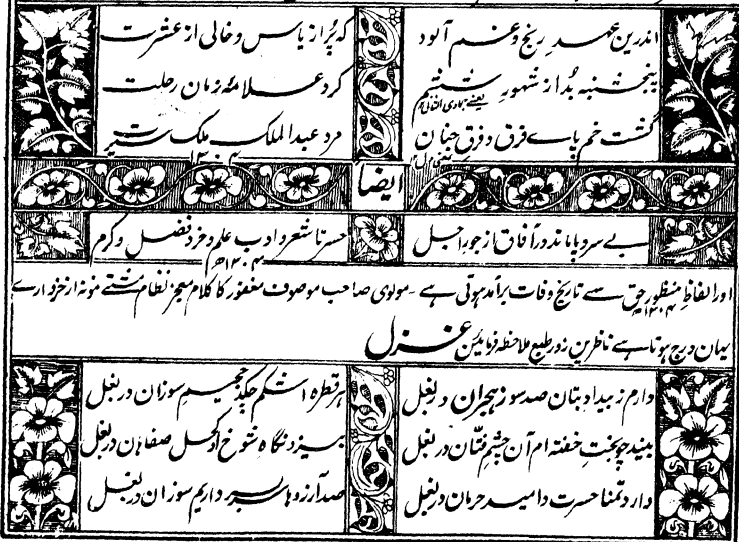 اندرین عہدِ رنج و غم آلود
که پُر از یاس و خالی از عشرت
پنجشنبه بُد از شہورِ ششم
یعنے جمادی الثانی
کرد علامۂ زمان رحلت
گشت خم پاے فرق و فرقِ جنان
مرد عبدالملک ملک سیرت
۱۳۰۴
ایضاً
بے سر و پا ماند در آفاق از جورِ اجل
حسرتا شعر و ادب علم و خرد فضل و کرم
۱۳۰۴ھ
اور الفاظ منظورِ حق سے تاریخ وفات برآمد ہوتی ہے ۔ مولوی صاحب موصوف مغفور کا کلام معجز نظام مشتے نمونہ از خردارے
۱۳۰۴
یہان درج ہوتا ہے ناظرین زورِ طبع ملاحظہ فرمائین
غزل
دارم ز بیدادِ بتان صد سوزِ ہجران در بغل
ہر قطرہ اشکم چکد جحیم سوزان در بغل
بیند چو بختِ خفته ام آن چشمِ فتّان در بغل
نگاہِ شوخِ او کحلِ صفاہان در بغل
دارد تمنا حسرت و امید حرمان در بغل
صد آرزوہا بسر داریم سوزان در بغل